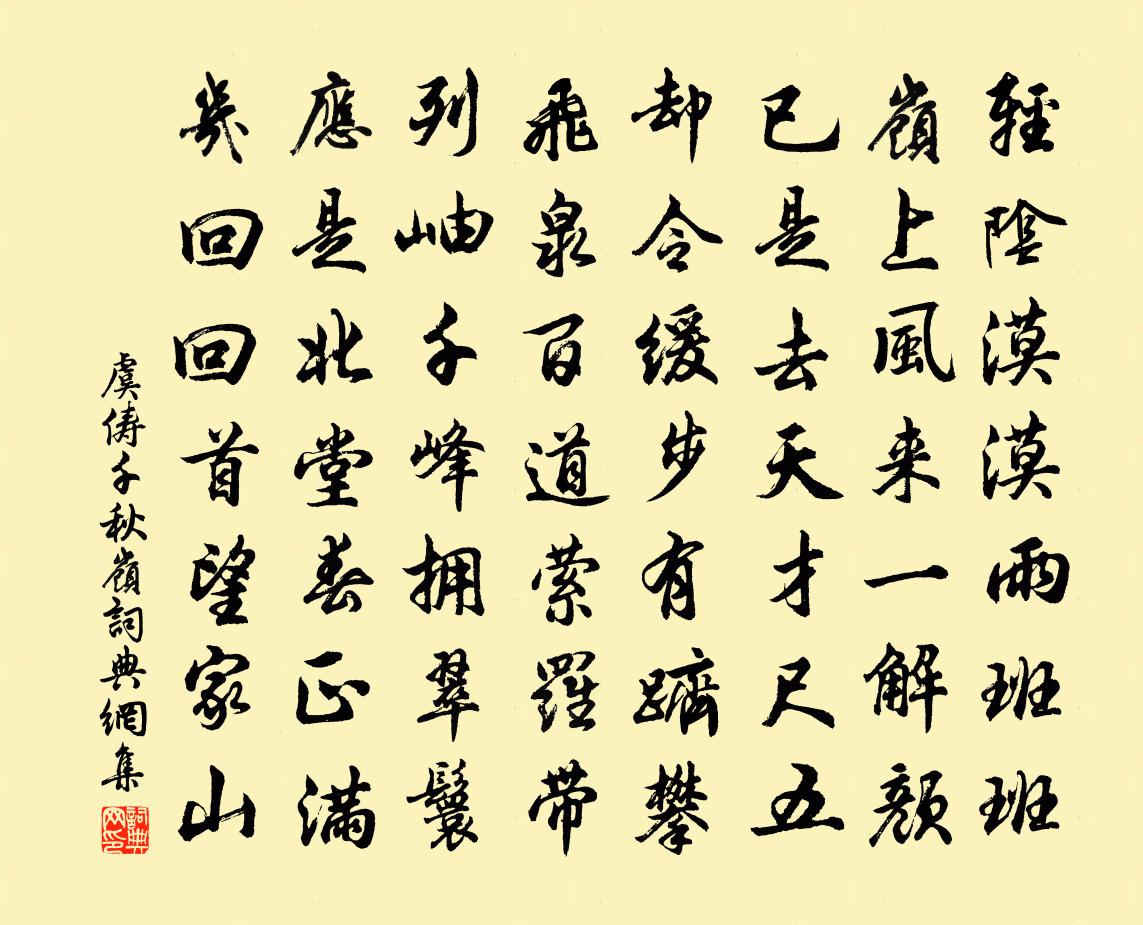 輕陰漠漠雨班班
嶺上風来一解顏
已是去天才尺五
却令緩步有躋攀
飛泉百道萦羅帶
列岫千峰拥翠鬟
應是北堂春正滿
幾回回首望家山
虞俦千秋嶺詞典網集
詞典网印